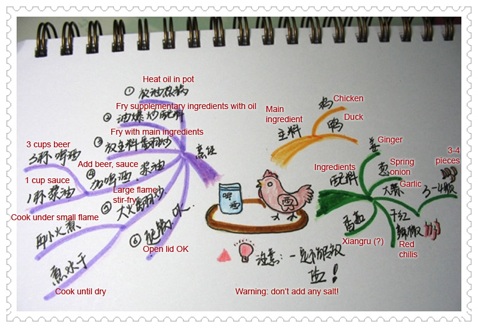 Heat oil in pot
①
Fry supplementary ingredients with oil
②
Fry with main ingredients
③ 放主料
3 cups beer
3杯啤酒
Add beer, sauce
④ 加啤酒 酱油
1 cup sauce
1杯酱油
Large flame
stir-fry
⑤ 大火
Cook under small flame
用小火煮
⑥ OK
Open lid OK
煮水干
Cook until dry
Main
ingredient
主料
Chicken
鸡
Duck
鸭
Ginger
姜
Ingredients
配料
Spring
onion
葱
Garlic
大蒜
3-4
pieces
3-4瓣
干红
辣椒
Red
chilis
Xiangru (?)
注意:一定不能放
盐!
Warning: don't add any salt!